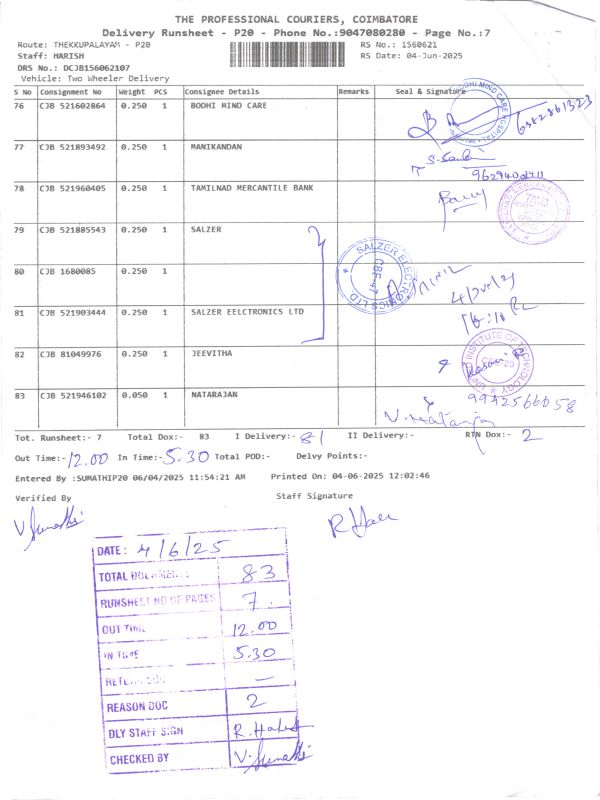 THE PROFESSIONAL COURIERS, COIMBATORE
Delivery Runsheet - P20 - Phone No.:9047080280 - Page No.:7
Route: THEKKUPALAYAM - P20 RS No.: 1560621
Staff: HARISH RS Date: 04-Jun-2025
DRS No.: DCJB156062107
Vehicle: Two Wheeler Delivery
S No Consignment No Weight PCS Consignee Details Remarks Seal & Signature
76 CJB 521602864 0.250 1 BODHI MIND CARE
77 CJB 521893492 0.250 1 MANIKANDAN
78 CJB 521960405 0.250 1 TAMILNAD MERCANTILE BANK
79 CJB 521885543 0.250 1 SALZER
SALZER ELECTRONICS LTD
CBE-47
80 CJB 1680085 0.250 1
81 CJB 521903444 0.250 1 SALZER EELCTRONICS LTD
82 CJB 81049976 0.250 1 JEEVITHA
INSTITUTE OF TECHNOLOGY
83 CJB 521946102 0.050 1 NATARAJAN
9942566658
Tot. Runsheet:- 7 Total Dox:- 83 I Delivery:- 81 II Delivery:- RTN Dox:- 2
Out Time:- 12.00 In Time:- 5.30 Total POD:- Delvy Points:-
Entered By :SUMATHIP20 06/04/2025 11:54:21 AM Printed On: 04-06-2025 12:02:46
Verified By Staff Signature
V. Sumathi
DATE: 4/6/25
TOTAL DOCUMENTS 83
RUNSHEET NO OF PAGES 7
OUT TIME 12.00
IN TIME 5.30
RETURN DOC —
REASON DOC 2
DLY STAFF SIGN R. Harish
CHECKED BY V. Sumathi